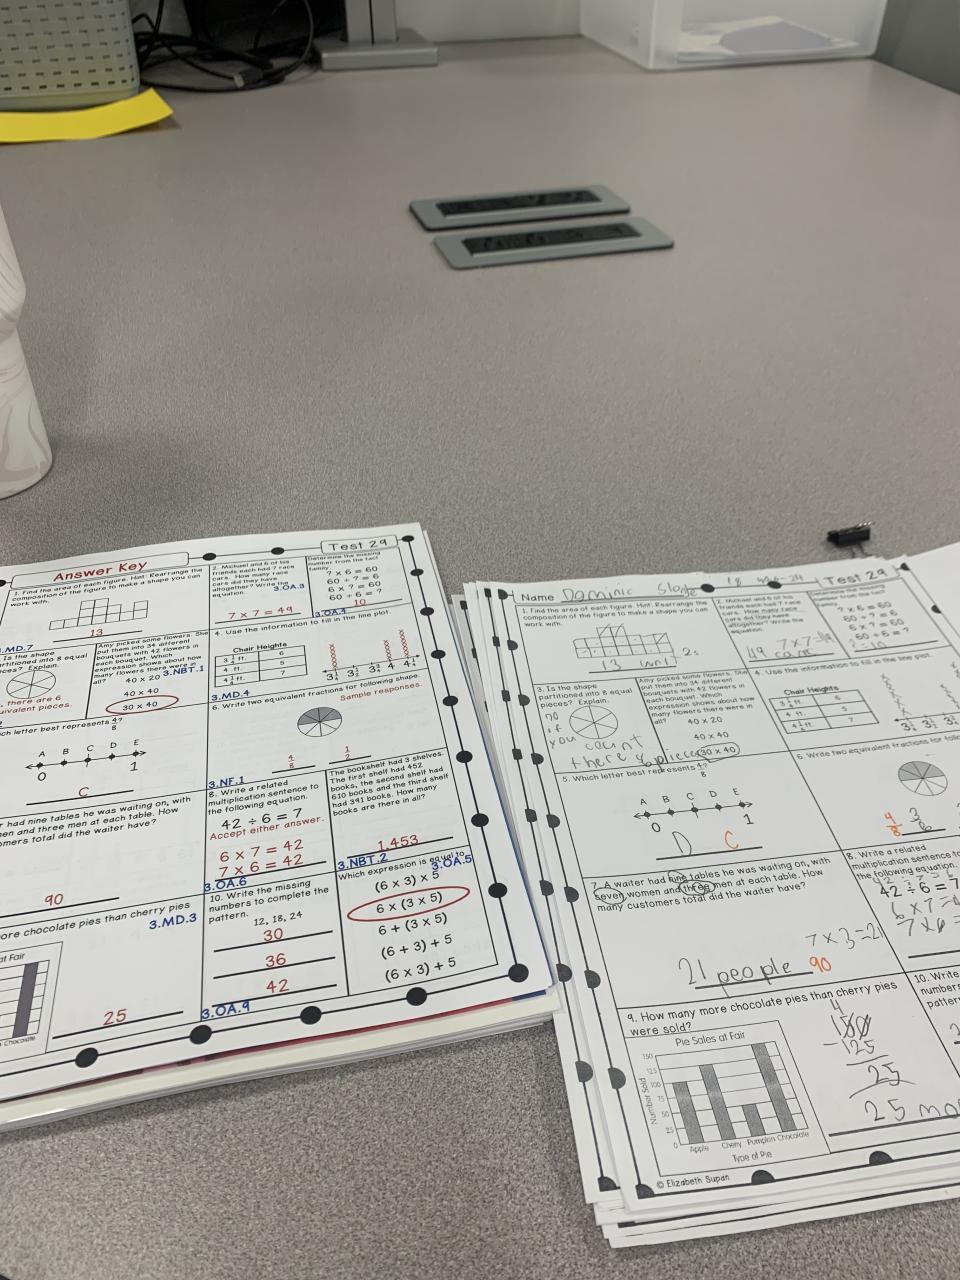 Answer Key
Test 29
1. Find the area of each figure. Hint: Rearrange the
composition of the figure to make a shape you can
work with.
13
2. Michael and 6 of his
friends each had 7 race
cars. How many race
cars did they have
altogether? Write the
equation.
3.OA.3
7 x 7 = 49
Determine the missing
number from the fact
family.
? x 6 = 60
60 ÷ ? = 6
6 x ? = 60
60 ÷ 6 = ?
10
3.OA.4
.MD.7
Is the shape
partitioned into 8 equal
pieces? Explain.
there are 6
equivalent pieces.
Amy picked some flowers. She
put them into 34 different
bouquets with 42 flowers in
each bouquet. Which
expression shows about how
many flowers there were in
all?
3.NBT.1
40 x 20
40 x 40
30 x 40
4. Use the information to fill in the line plot.
Chair Heights
3 1/4 ft. 6
4 ft. 5
4 1/4 ft. 7
3.MD.4
ch letter best represents 4/8?
A B C D E
0 1
C
6. Write two equivalent fractions for following shape.
Sample responses.
4/8
1/2
3.NF.1
r had nine tables he was waiting on, with
en and three men at each table. How
omers total did the waiter have?
90
8. Write a related
multiplication sentence to
the following equation.
42 ÷ 6 = 7
Accept either answer.
6 x 7 = 42
7 x 6 = 42
3.OA.6
The bookshelf had 3 shelves.
The first shelf had 452
books, the second shelf had
610 books and the third shelf
had 391 books. How many
books are there in all?
1,453
3.NBT.2
ore chocolate pies than cherry pies
3.MD.3
at Fair
Chocolate
25
10. Write the missing
numbers to complete the
pattern.
12, 18, 24
30
36
42
3.OA.9
3.OA.5
Which expression is equal to
(6 x 3) x 5
6 x (3 x 5)
6 + (3 x 5)
(6 + 3) + 5
(6 x 3) + 5
Name Dominic
Test 29
1. Find the area of each figure. Hint: Rearrange the
composition of the figure to make a shape you can
work with.
13
2. Michael and 6 of his
friends each had 7 race
cars. How many race
cars did they have
altogether? Write the
equation.
49 cars
number from the fact
family.
? x 6 = 60
60 ÷ ? = 6
6 x ? = 60
60 ÷ 6 = ?
3. Is the shape
partitioned into 8 equal
pieces? Explain.
no
if
you count
there 6 pieces
Amy picked some flowers. She
put them into 34 different
bouquets with 42 flowers in
each bouquet. Which
expression shows about how
many flowers there were in
all?
40 x 20
40 x 40
30 x 40
4. Use the information to fill in the line plot.
Chair Heights
3 1/4 ft. 6
4 ft. 5
4 1/4 ft. 7
5. Which letter best represents 4/8?
A B C D E
0 1
D C
6. Write two equivalent fractions for follo
4/8
7. A waiter had nine tables he was waiting on, with
seven women and three men at each table. How
many customers total did the waiter have?
7 x 3 = 21
21 people 90
8. Write a related
multiplication sentence
the following equation.
42 ÷ 6 = 7
9. How many more chocolate pies than cherry pies
were sold?
Pie Sales at Fair
Number Sold
150
125
100
75
50
25
0
Apple Cherry Pumpkin Chocolate
Type of Pie
150
-125
25
25 mo
10. Write
numbers
patter
© Elizabeth Supan